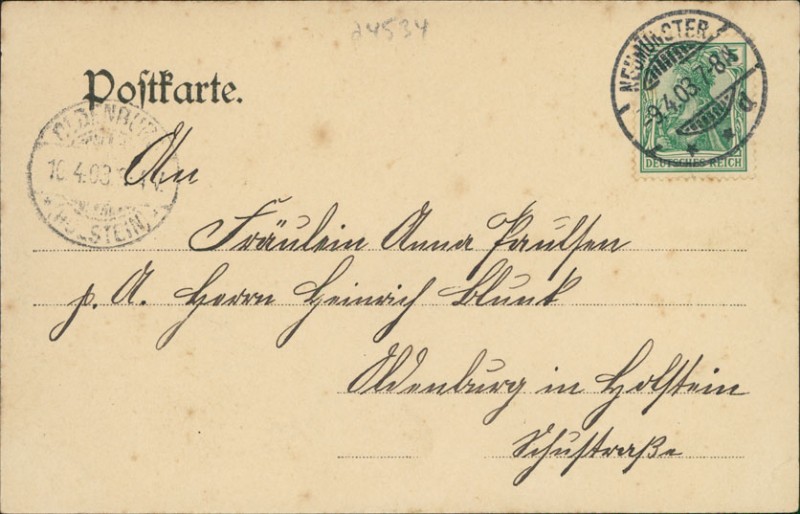 d4534
NEUMÜNSTER
-9.4.03.7-8N.
d
DEUTSCHES REICH
Postkarte.
OLDENBURG
10.4.03
(HOLSTEIN)
An
Fräulein Anna Paulsen
p. A. Herrn Heinrich Blunk
Oldenburg in Holstein
Schustraße